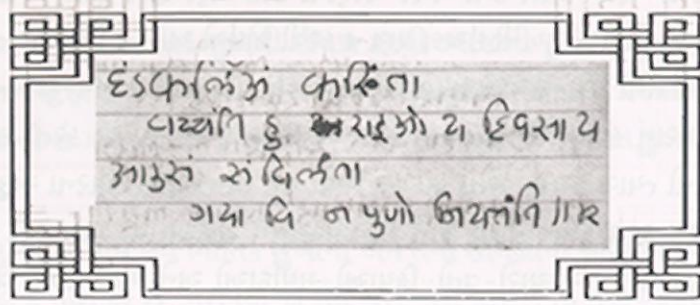 दंडकलिअं करिंता
वच्चंति हु राइओ य दिवसा य
आउसं संविलंता
गया वि न पुणो नियत्तंति ॥